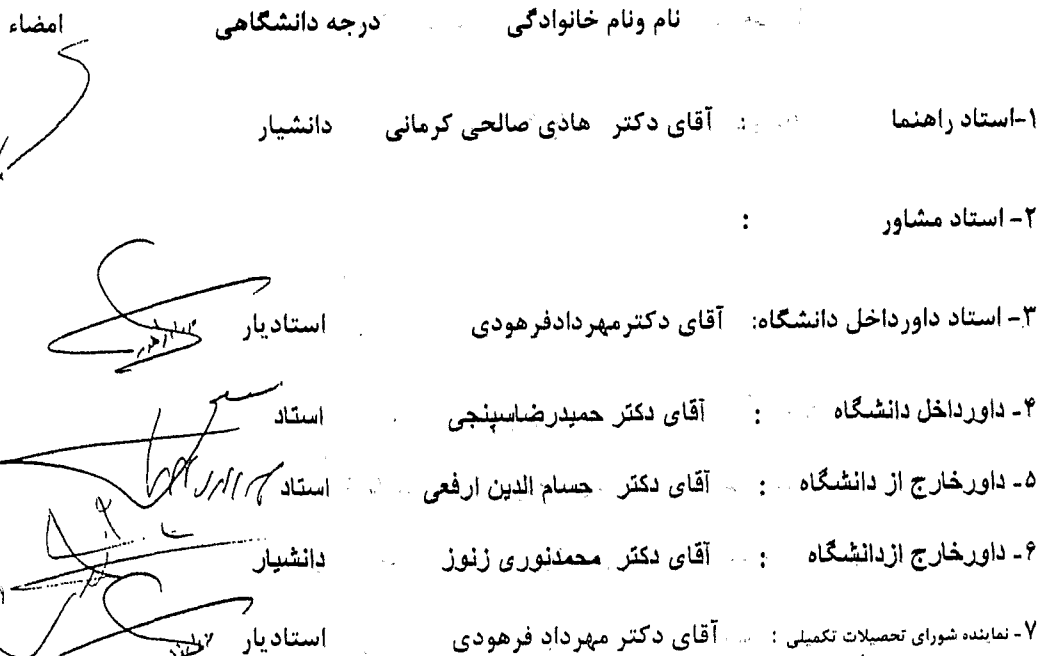 نام ونام خانوادگی درجه دانشگاهی امضاء
۱-استاد راهنما : آقای دکتر هادی صالحی کرمانی دانشیار
۲- استاد مشاور :
۳- استاد داورداخل دانشگاه: آقای دکترمهردادفرهودی استادیار
۴- داورداخل دانشگاه : آقای دکتر حمیدرضاسپنجی استاد
۵- داورخارج از دانشگاه : آقای دکتر حسام الدین ارفعی استاد
۶- داورخارج ازدانشگاه : آقای دکتر محمدنوری زنوز دانشیار
۷- نماینده شورای تحصیلات تکمیلی : آقای دکتر مهرداد فرهودی استادیار